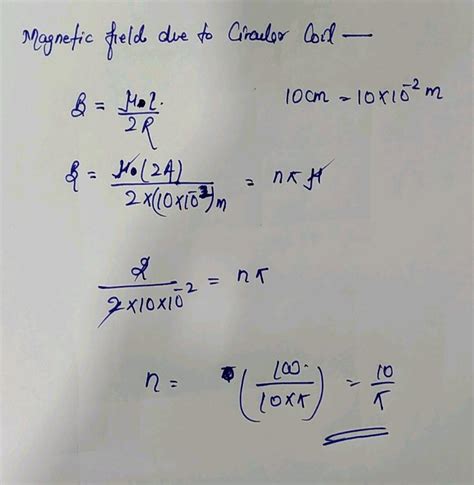 Magnetic field due to Circular Coil —
B = μ₀I / 2R
10cm = 10×10⁻² m
B = μ₀(2A) / 2×(10×10⁻²)m = nπ μ
2 / 2×10×10⁻² = nπ
n = (100 / 10×π) = 10/π